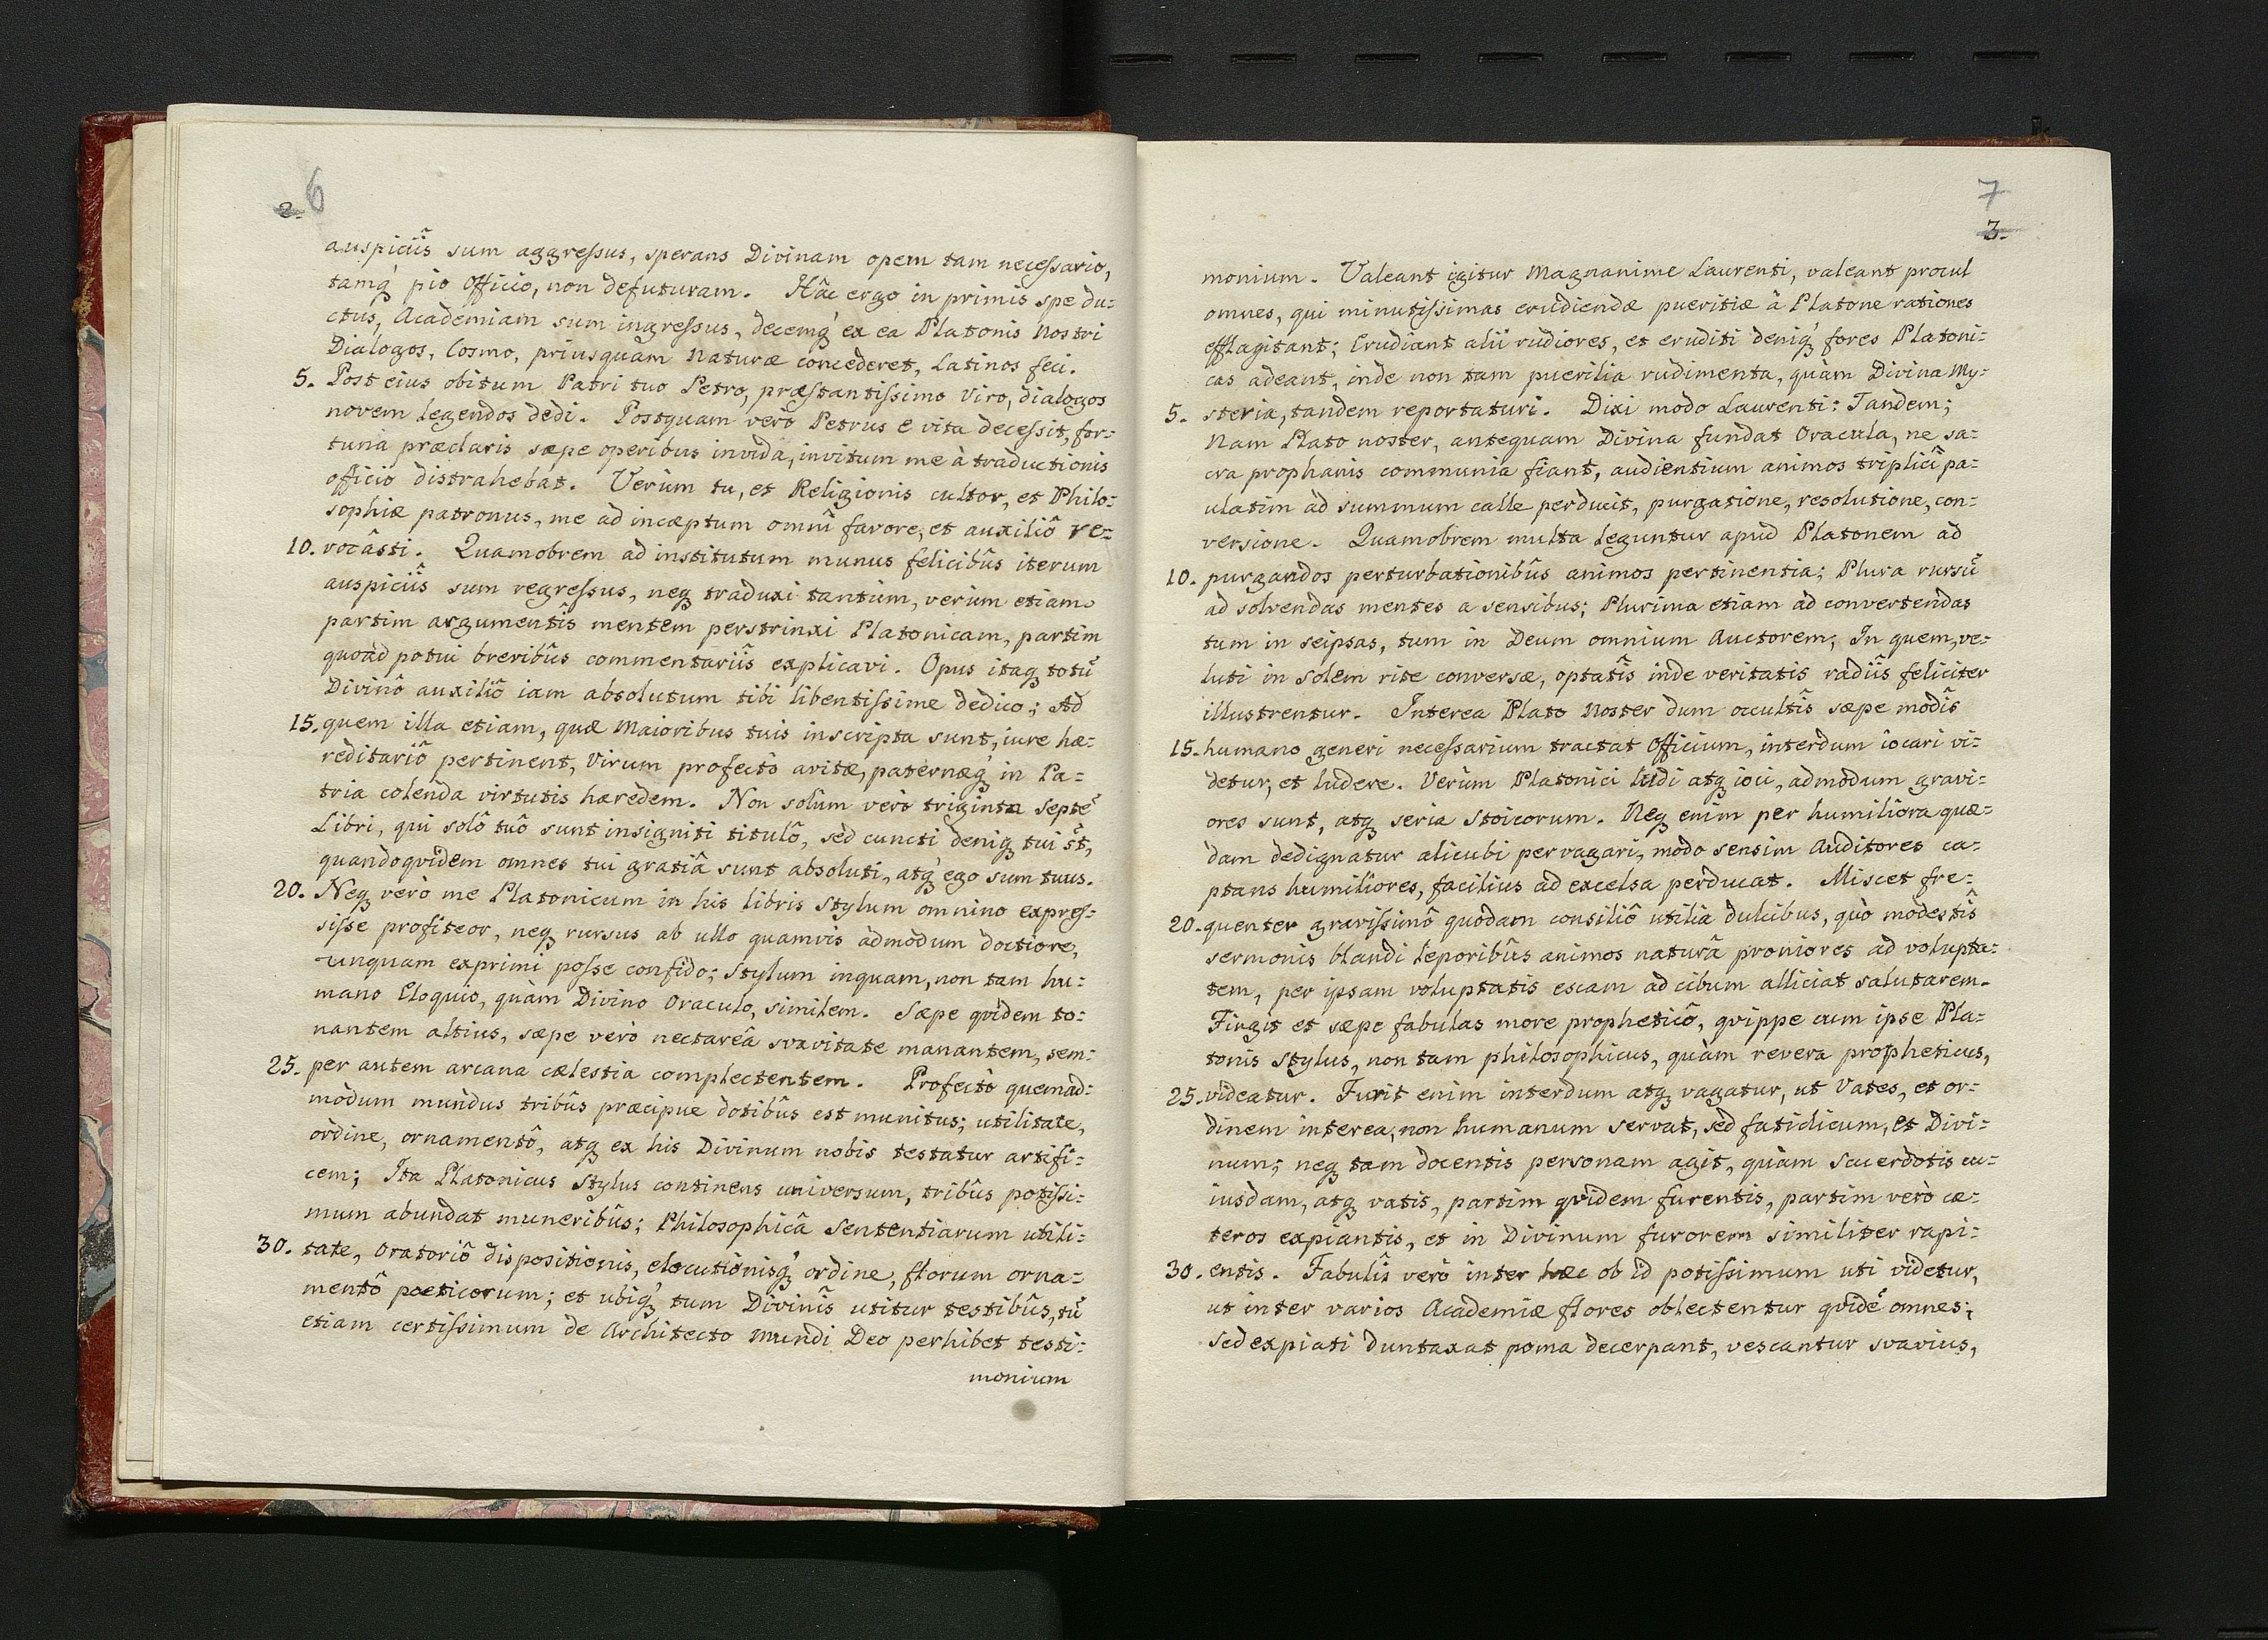 2. 6
auspiciîs sum aggressus, sperans Divinam opem tam necessario,
tamq́ pio Officio, non defuturam. Hâc ergo in primis spe du=
ctus, Academiam sum ingressus, decemq́ ex ea Platonis Nostri
Dialogos, Cosmo, priusquam Naturæ concederet, Latinos feci.
5. Post eius obitum Patri tuo Petro, præstantissimo Viro, dialogos
novem legendos dedi. Postquam verò Petrus e vita decessit, for=
tuna præclaris sæpe operibus invida, invitum me à traductionis
officio distrahebat. Verùm tu, et Religionis cultor, et Philo=
sophiæ patronus, me ad incæptum omnî favore, et auxiliô re=
10. vocâsti. Quamobrem ad institutum munus felicibûs iterum
auspiciîs sum regressus, neq traduxi tantùm, verùm etiam
partim argumentîs mentem perstrinxi Platonicam, partim
quoàd potui brevibûs commentariîs explicavi. Opus itaq totũ
Divinô auxiliô iam absolutum tibi libentissime dedico; Ad
15. quem illa etiam, quæ Maioribus tuis inscripta sunt, iure hæ=
reditariô pertinent, Virum profectò avitæ, paternæq́ in Pa=
tria colenda virtutis hæredem. Non solùm verò triginta septẽ
Libri, qui solô tuô sunt insigniti titulô, sed cuncti deniq tui s̃t,
quandoquidem omnes tui gratiâ sunt absoluti, atq́ ego sum tuus.
20. Neq verò me Platonicum in his libris Stylum omnino expres=
sisse profiteor, neq rursus ab ullo quamvis admodum doctiore,
unquam exprimi posse confido; Stylum inquam, non tam hu=
mano Eloquio, quàm Divino Oraculo, similem. Sæpe quidem to=
nantem altius, sæpe verò nectareâ svavitate manantem, sem=
25. per autem arcana cælestia complectentem. Profectò quemad=
modum mundus tribûs præcipue dotibûs est munitus; utilitate,
ordine, ornamentô, atq ex his Divinum nobis testatur artifi=
cem; Ita Platonicus Stylus continens universum, tribûs potissi=
mum abundat muneribûs; Philosophicâ Sententiarum utili=
30. tate, Oratoriô dispositionis, elocutionisq́ ordine, florum orna=
mentô poeticorum; et ubiq́ tum Divinîs utitur testibûs, tũ
etiam certissimum de Architecto Mundi Deo perhibet testi=
monium
7
3.
monium. Valeant igitur Magnanime Laurenti, valeant procul
omnes, qui minutissimas erudiendæ pueritiæ à Platone rationes
efflagitant; Erudiant alii rudiores, et eruditi deniq́ fores Platoni=
cas adeant, inde non tam puerilia rudimenta, quàm Divina My=
5. steria, tandem reportaturi. Dixi modo Laurenti: Tandem;
Nam Plato noster, antequam Divina fundat Oracula, ne sa=
cra prophanis communia fiant, audientium animos triplicî pa=
ulatim ad summum calle perducit, purgatione, resolutione, con=
versione. Quamobrem multa leguntur apud Platonem ad
10. purgandos perturbationibûs animos pertinentia; Plura rursũ
ad solvendas mentes a sensibus; Plurima etiam ad convertendas
tum in seipsas, tum in Deum omnium Auctorem; In quem, ve=
luti in Solem rite conversæ, optatîs inde veritatis radiîs feliciter
illustrentur. Interea Plato Noster dum occultîs sæpe modîs
15. humano generi necessarium tractat Officium, interdum iocari vi=
detur, et ludere. Verùm Platonici ludi atq ioci, admodum gravi=
ores sunt, atq seria Stoicorum. Neq enim per humiliora quæ=
dam dedignatur alicubi pervagari, modo sensim Auditores ca=
ptans humiliores, facilius ad excelsa perducat. Miscet fre=
20. quenter gravissimô quodam consiliô utilia dulcibus, quò modestîs
sermonis blandi leporibûs animos naturâ proniores ad volupta=
tem, per ipsam voluptatis escam ad cibum alliciat salutarem.
Fingit et sæpe fabulas more propheticô, quippe cum ipse Pla=
tonis Stylus, non tam philosophicus, quàm revera propheticus,
25. videatur. Furit enim interdum atq vagatur, ut Vates, et or=
dinem interea, non humanum servat, sed fatidicum, et Divi=
num; neq tam docentis personam agit, quàm sacerdotis cu=
iusdam, atq vatis, partim quidem furentis, partim verò cæ=
teros expiantis, et in Divinum furorem similiter rapi=
30. entis. Fabulîs verò inter hæc ob id potissimum uti videtur,
ut inter varios Academiæ flores oblectentur quidẽ omnes;
Sed expiati duntaxat poma decerpant, vescantur svavius,